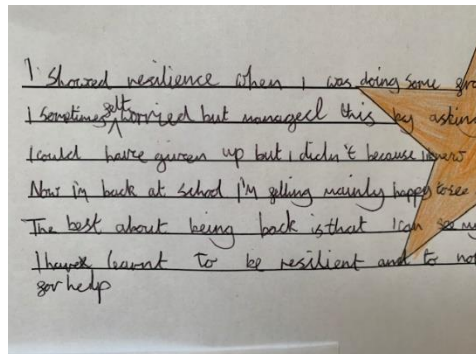 I showed resilience when I was doing some
I sometimes felt worried but managed this by
I could have given up but i didn't because i knew
Now i'm back at school I'm felling mainly happy to see
The best about being back is that I can see
I have learnt to be resilient and to not
for help